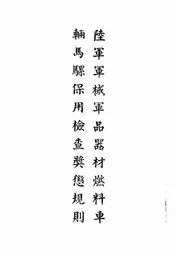 陸軍軍械軍品器材燃料車
輛馬騾保用檢查獎懲規則